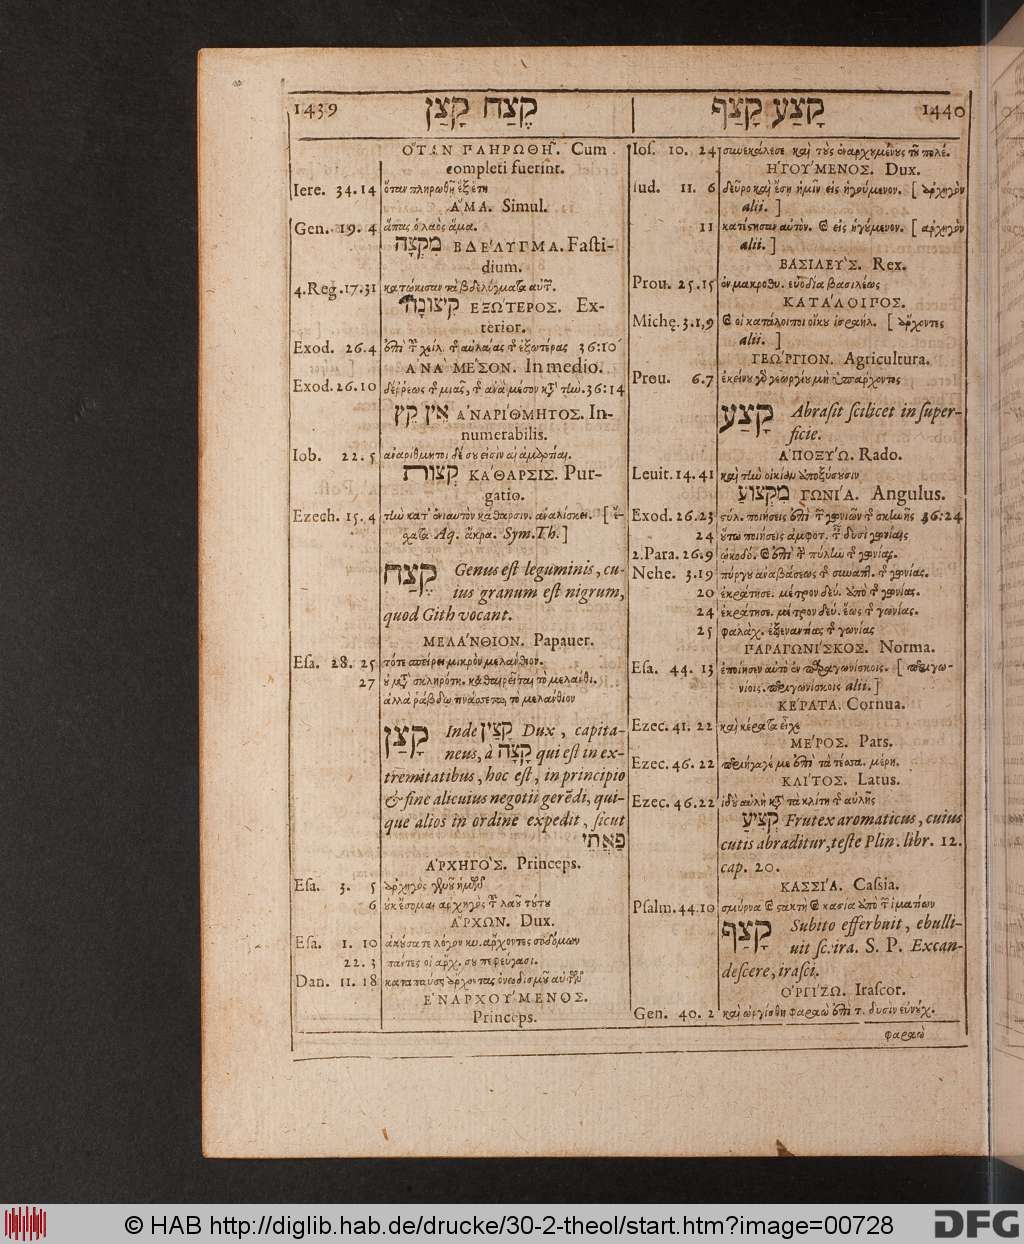 1439 קֶצַח קָצַן
קָצַע קָצַף 1440
ὍΤΑΝ ΠΛΗΡΩΘΗ͂. Cum
completi fuerint.
Iere. 34.14 ὅταν πληρωθῆ ἓξ ἔτη
ἍΜΑ. Simul.
Gen. 19. 4 ἅπας ὁ λαὸς ἅμα.
מִקְצָה ΒΔΕΛΥΓΜΑ. Fasti-
dium.
4.Reg.17.31
קִיצוֹנָה ΕΞΩ´ΤΕΡΟΣ. Ex-
terior.
Exod. 26.4 ἐπὶ τοῦ χείλ. τῆς αὐλαίας τῆς ἐξωτέρας 36:10
ΑΝΑ` ΜΕ´ΣΟΝ. In medio.
Exod. 26.10 36:14
אֵין קֵץ ΑΝΑΡΙ´ΘΜΗΤΟΣ. In-
numerabilis.
Iob. 22. 5 ἀναρίθμητοι δέ σου εἰσὶν αἱ ἁμαρτίαι.
קְצוֹת ΚΑ´ΘΑΡΣΙΣ. Pur-
gatio.
Ezech. 15. 4 τὴν κατ' ἐνιαυτὸν κάθαρσιν. ἀναλίσκει. [ ἔ-
χατα Aq. ἄκρα. Sym. Th. ]
קֶצַח Genus est leguminis, cu-
ius granum est nigrum,
quod Gith vocant.
ΜΕΛΑ´ΝΘΙΟΝ. Papauer.
Esa. 28. 25 τότε σπείρει μικρὸν μελάνθιον.
27 οὐ μετὰ σκληρότη. καθαιρεῖται τὸ μελάνθι.
ἀλλὰ ῥάβδῳ τὸ μελάνθιον
קָצַן Inde קָצִין Dux, capita-
neus, à קָצָה qui est in ex-
tremitatibus, hoc est, in principio
& fine alicuius negotii gerēdi, qui-
que alios in ordine expedit, sicut
פַּאֲתֵי
ἈΡΧΗΓΟ´Σ. Princeps.
Esa. 3. 5 ἀρχηγὸς
6 οὐκ ἔσομαι ἀρχηγὸς τοῦ λαοῦ τούτου
ἌΡΧΩΝ. Dux.
Esa. 1. 10 ἀκούσατε λόγον κυ. ἄρχοντες σοδόμων
22. 3 πάντες οἱ ἄρχ. σου πεφεύγασι.
Dan. 11. 18 καταπαύσει ἄρχοντας ὀνειδισμοῦ αὐτῶν
ἘΝΑΡΧΟΥ´ΜΕΝΟΣ.
Princeps.
Ios. 10. 24 συνεκάλεσε καὶ τοὺς ἐναρχομένους τοῦ πολέ.
ἩΓΟΥ´ΜΕΝΟΣ. Dux.
Iud. 11. 6 δεῦρο καὶ ἔσῃ ἡμῖν εἰς ἡγούμενον. [ ἀρχηγὸν
alii. ]
11 κατέστησαν αὐτὸν. & εἰς ἡγούμενον. [ ἀρχηγὸν
alii. ]
ΒΑΣΙΛΕΥ`Σ. Rex.
Prou. 25.15 ἐν μακροθυ. εὐοδία βασιλέως
ΚΑΤΑ´ΛΟΙΠΟΣ.
Michę. 3.1,9 & οἱ κατάλοιποι οἴκου ἰσραήλ. [ ἄρχοντες
alii. ]
ΓΕΩ´ΡΓΙΟΝ. Agricultura.
Prou. 6.7 ἐκείνου γὰρ γεωργίου μὴ ὑπάρχοντος
קָצַע Abrasit scilicet in super-
ficie.
ἈΠΟΞΥ´Ω. Rado.
Leuit. 14. 41 καὶ τὴν οἰκίαν ἀποξύσουσιν
מִקְצוֹעַ ΓΩΝΙ´Α. Angulus.
Exod. 26.23 στύλ. ποιήσεις ἐπὶ τῶν γωνιῶν τῆς σκηνῆς 36:24
24 οὕτω ποιήσεις ἀμφοτ. ταῖς δυσὶ γωνίαις
2.Para. 26.9 ᾠκοδό. & ἐπὶ τὴν πύλην τῆς γωνίας.
Nehe. 3.19 πύργου ἀναβάσεως τῆς συναπτ. τῆς γωνίας.
20 ἐκράτησε. μέτρον δεύ. ἀπὸ τῆς γωνίας.
24 ἐκράτησε. μέτρον δεύ. ἕως τῆς γωνίας.
25 φαλάχ. ἐξεναντίας τῆς γωνίας
ΠΑΡΑΓΩΝΙ´ΣΚΟΣ. Norma.
Esa. 44. 13 ἐποίησεν αὐτὸ ἐν παραγωνίσκοις. [ περιγω-
νίοις. περιγωνίσκοις alii. ]
ΚΕ´ΡΑΤΑ. Cornua.
Ezec. 41. 22 καὶ κέρατα εἶχε
ΜΕ´ΡΟΣ. Pars.
Ezec. 46. 22 περιήγαγέ με ἐπὶ τὰ τέσσα. μέρη.
ΚΛΙ´ΤΟΣ. Latus.
Ezec. 46. 22 ἰδοὺ αὐλὴ κατὰ τὰ κλίτη τῆς αὐλῆς
קְצִיעַ Frutex aromaticus, cuius
cutis abraditur, teste Plin. libr. 12.
cap. 20.
ΚΑΣΣΙ´Α. Cassia.
Psalm. 44. 10 σμύρνα & στακτὴ & κασία ἀπὸ τῶν ἱματίων
קָצַף Subito efferbuit, ebulli-
uit sc. ira. S. P. Excan-
descere, irasci.
ὈΡΓΙ´ΖΩ. Irascor.
Gen. 40. 2 καὶ ὠργίσθη φαραὼ ἐπὶ τ. δυσὶν εὐνούχ.
φαραὼ
© HAB http://diglib.hab.de/drucke/30-2-theol/start.htm?image=00728
DFG